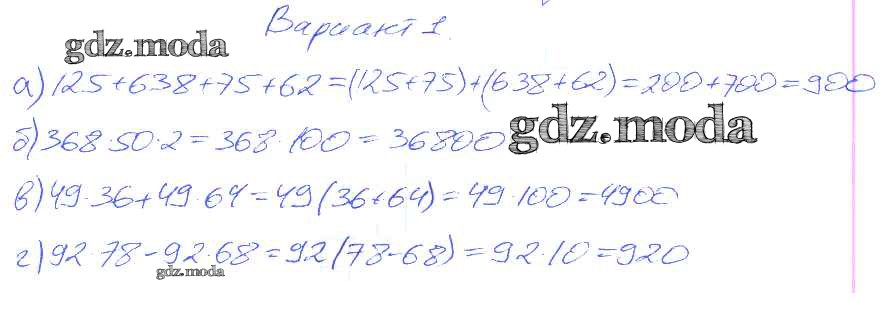 Вариант 1.
gdz.moda
а) 125+638+75+62=(125+75)+(638+62)=200+700=900
б) 368·50·2=368·100=36800 gdz.moda
в) 49·36+49·64=49(36+64)=49·100=4900
г) 92·78-92·68=92(78-68)=92·10=920
gdz.moda